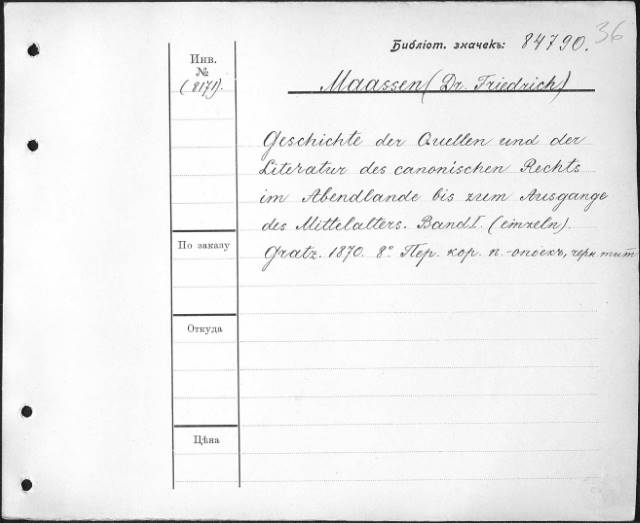 Библіот. значекъ: 84790. 36
Инв.
№
(8171).
Maassen (Dr. Friedrich)
Geschichte der Quellen und der
Literatur des canonischen Rechts
im Abendlande bis zum Ausgange
des Mittelalters. Band I. (einzeln).
Gratz. 1870. 8° Пер. кор. п.-опоекъ, черн. тит
По заказу
Откуда
Цѣна